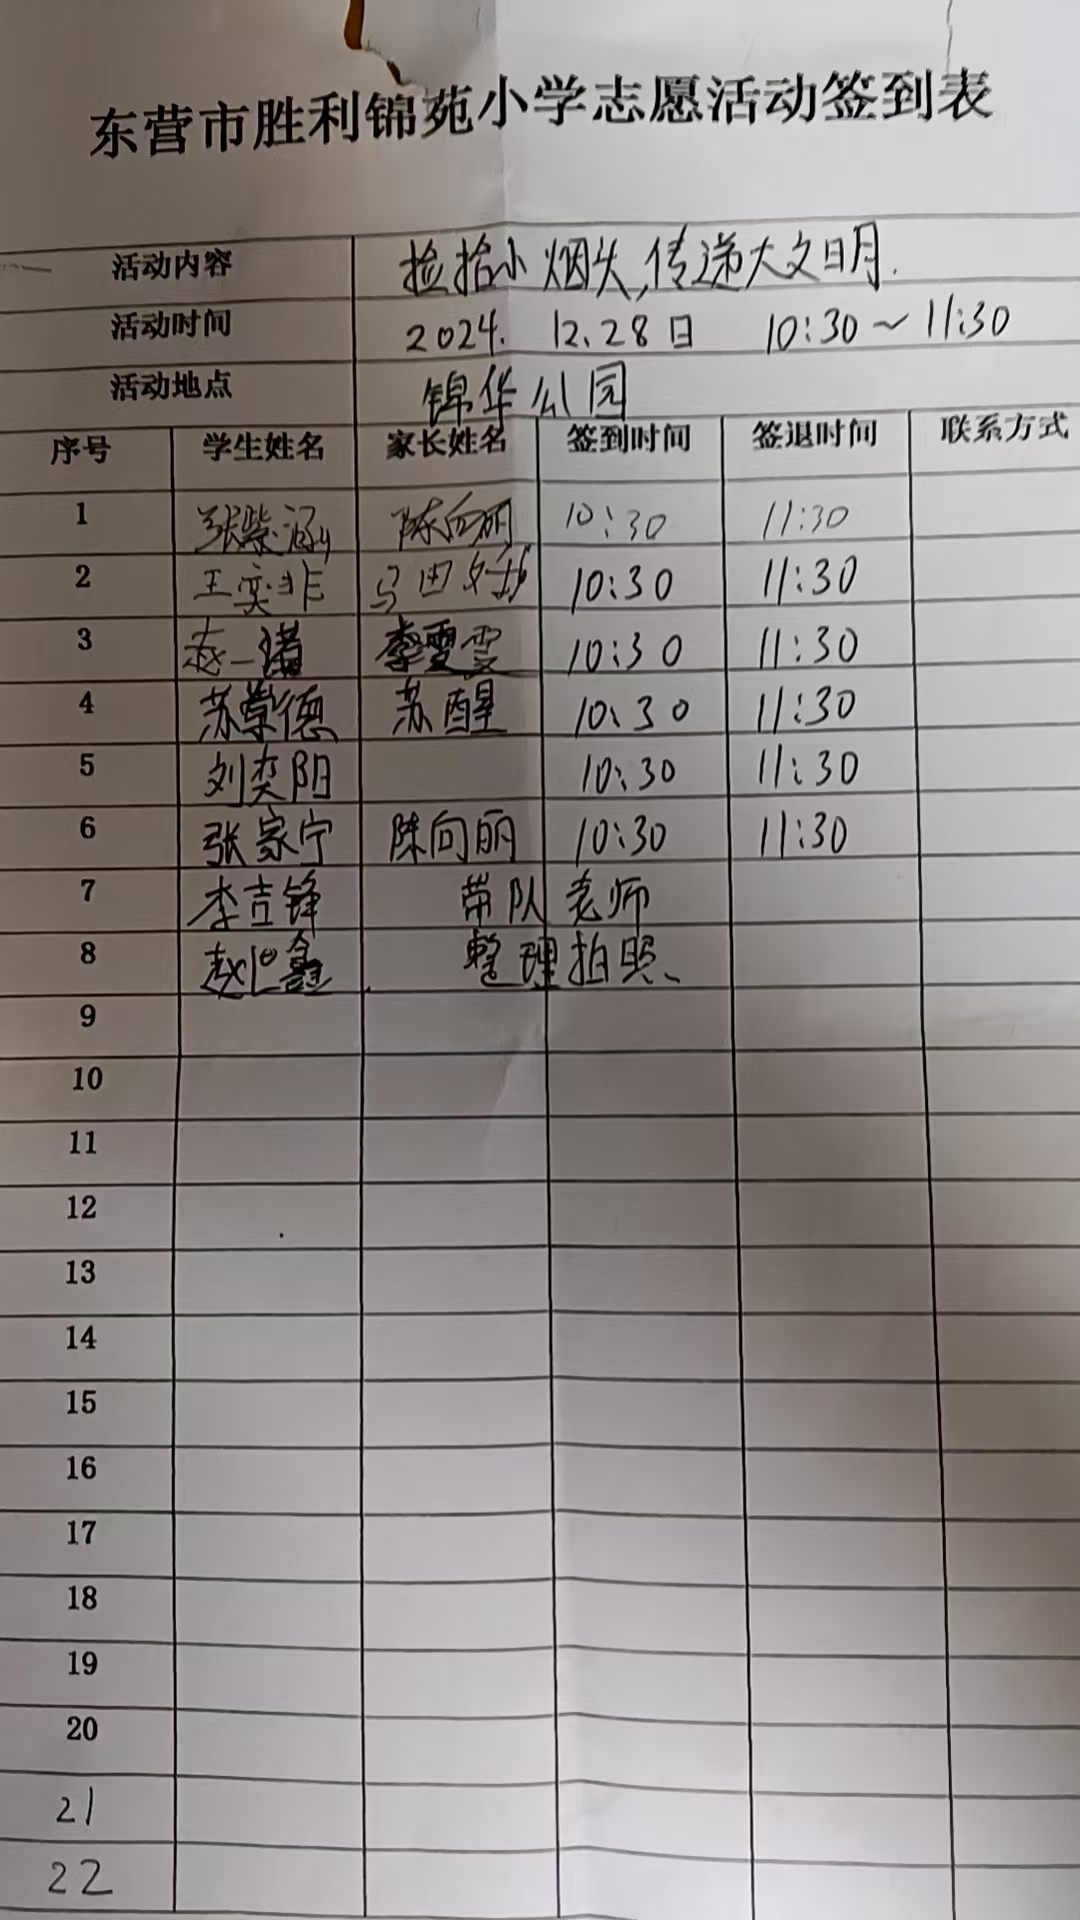 东营市胜利锦苑小学志愿活动签到表
活动内容 捡拾小烟头,传递大文明.
活动时间 2024. 12.28日 10:30~11:30
活动地点 锦华公园
序号 学生姓名 家长姓名 签到时间 签退时间 联系方式
1 张紫涵 陈向丽 10:30 11:30
2 王奕非 马田 10:30 11:30
3 赵一诺 李雯雯 10:30 11:30
4 苏学德 苏醒 10:30 11:30
5 刘奕阳 10:30 11:30
6 张家宁 陈向丽 10:30 11:30
7 李吉锋 带队老师
8 赵 鑫 整理拍照、
9
10
11
12
13
14
15
16
17
18
19
20
21
22